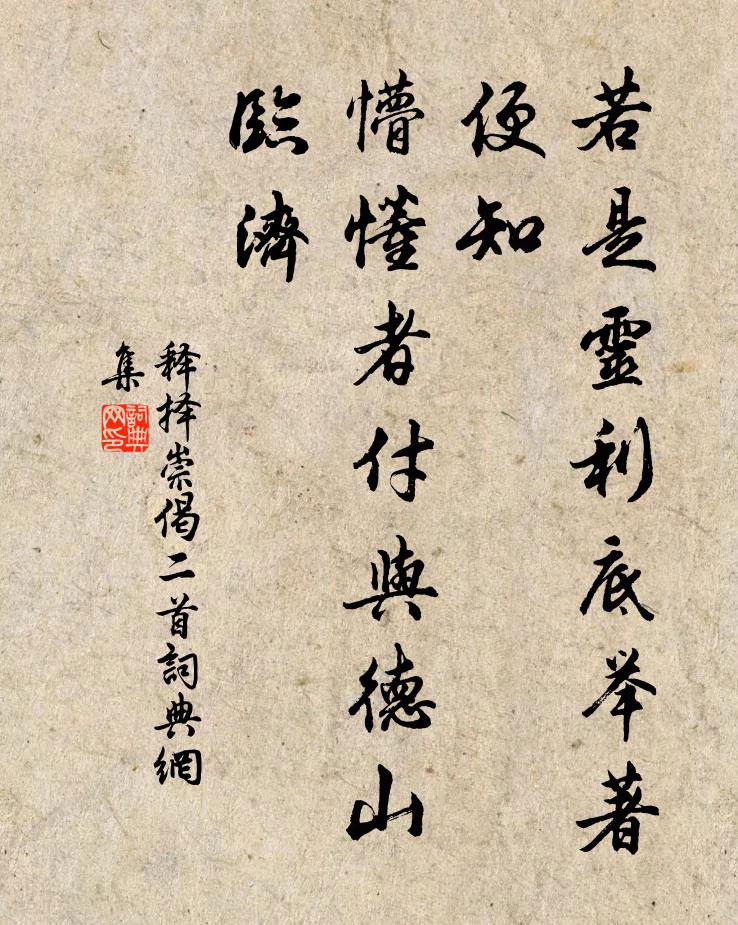 若是靈利底举著
便知
懵懂者付與德山
臨濟
释择崇偈二首詞典網
集
詞典
网印